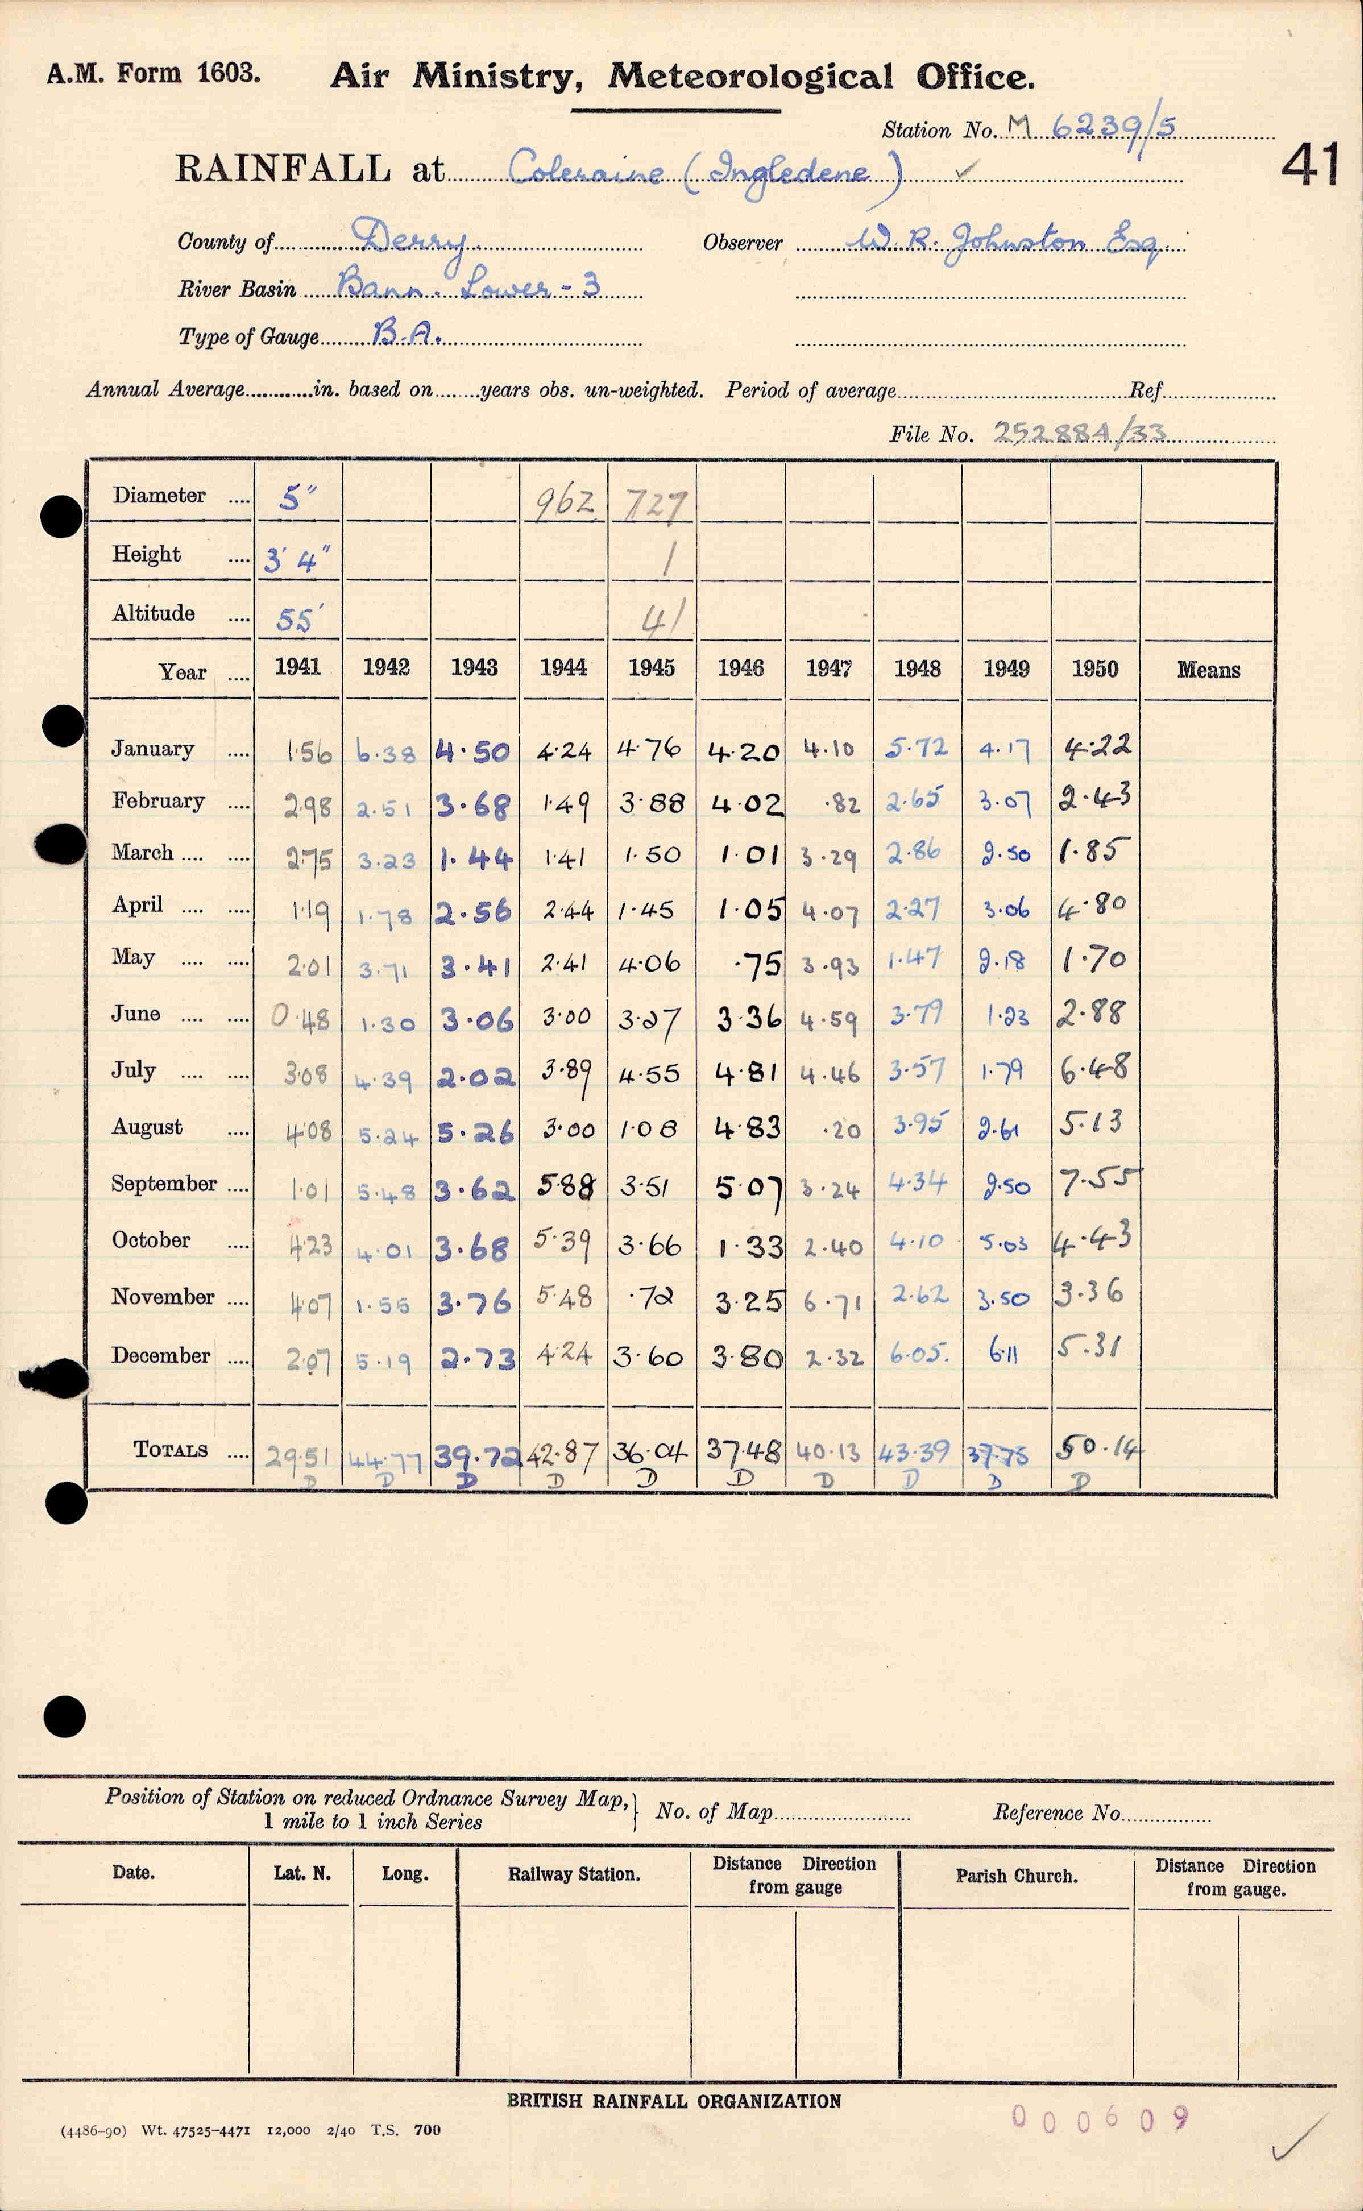 A.M. Form 1603. Air Ministry, Meteorological Office.
Station No. M 6239/5
41
RAINFALL at Coleraine (Ingledene) ✓
County of Derry. Observer W. R. Johnston Esq.
River Basin Bann. Lower - 3
Type of Gauge B.A.
Annual Average in. based on years obs. un-weighted. Period of average Ref.
File No. 252884/33
Diameter .... 5" 962 727
Height .... 3' 4" 1
Altitude .... 55' 41
Year .... 1941 1942 1943 1944 1945 1946 1947 1948 1949 1950 Means
January .... 1.56 6.38 4.50 4.24 4.76 4.20 4.10 5.72 4.17 4.22
February .... 2.98 2.51 3.68 1.49 3.88 4.02 .82 2.65 3.07 2.43
March .... .... 2.75 3.23 1.44 1.41 1.50 1.01 3.29 2.86 2.50 1.85
April .... .... 1.19 1.78 2.56 2.44 1.45 1.05 4.07 2.27 3.06 4.80
May .... .... 2.01 3.71 3.41 2.41 4.06 .75 3.93 1.47 2.18 1.70
June .... .... 0.48 1.30 3.06 3.00 3.27 3.36 4.59 3.79 1.23 2.88
July .... .... 3.08 4.39 2.02 3.89 4.55 4.81 4.46 3.57 1.79 6.48
August .... 4.08 5.24 5.26 3.00 1.08 4.83 .20 3.95 2.61 5.13
September .... 1.01 5.48 3.62 5.88 3.51 5.07 3.24 4.34 2.50 7.55
October .... 4.23 4.01 3.68 5.39 3.66 1.33 2.40 4.10 5.03 4.43
November .... 4.07 1.55 3.76 5.48 .72 3.25 6.71 2.62 3.50 3.36
December .... 2.07 5.19 2.73 4.24 3.60 3.80 2.32 6.05. 6.11 5.31
TOTALS .... 29.51 44.77 39.72 42.87 36.04 37.48 40.13 43.39 37.75 50.14
D D D D D D D D D D
Position of Station on reduced Ordnance Survey Map, } No. of Map Reference No.
1 mile to 1 inch Series
Date. Lat. N. Long. Railway Station. Distance Direction from gauge Parish Church. Distance Direction from gauge.
BRITISH RAINFALL ORGANIZATION
(4486-90) Wt. 47525-4471 12,000 2/40 T.S. 700
000609
✓